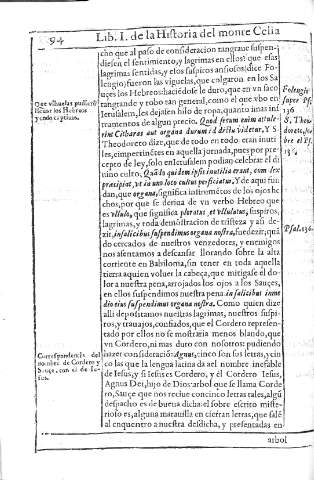 94 Lib. I. de la Historia del monte Celia
cho que al paso de consideracion tan graue suspen-
diesen el sentimiento, y lagrimas en ellos: que esas
lagrimas sentidas, y ellos suspiros ansiosos (dice Fo-
lengio) fueron las viguelas, que colgaron en los Sau-
ces los Hebreos: haciẽdose le duro, que en vn saco
tan grande y robo tan general, como el que vbo en
Ierusalem, les dejasen hilo de ropa, quanto mas ins-
trumentos de algun precio. Quod secum enim attule-
rint Citharas aut organa durum id dictu videtur. Y S.
Theodoreto dize, que de todo en todo eran inuti-
les, e impertinẽtes en aquella jornada, pues por pre-
cepto de ley, solo en Ierusalem podian celebrar el di
uino culto. Quãdo quidem ipsis inutilia erant, cum lex
præcipiat, vt in vno loco cultus perficiatur. Y de aqui fun-
dan, que organa, significa instrumẽtos de los ojos he-
chos, por que se deriua de vn verbo Hebreo que
es vllulo, que significa ploratus, et vllulatus, suspiros,
lagrimas, y toda demõstracion de tristeza y asi de-
zir, in salicibus suspendimus organa nostra, fue dezir, quã
do cercados de nuestros vencedores, y enemigos
nos asentamos a descansar llorando sobre la alta
corriente en Babilonia, sin tener en toda aquella
tierra a quien voluer la cabeça, que mitigase el do-
lor a nuestra pena, arrojados los ojos a los Sauçes,
en ellos suspendimos nuestra pena. in salicibus in me
dio eius suspendimus organa nostra. Como quien dize
alli depositamos nuestras lagrimas, nuestros suspi-
ros, y trauajos, confiados, que el Cordero represen-
tado por ellos no se mostraria menos blando, que
vn Cordero, ni mas duro con nosotros: pudiendo
hazer consideraciõ: Agnus, cinco son sus letras, y cin
co las que la lengua latina da al nombre inefable
de Iesus, y si Iesus es Cordero, y el Cordero Iesus,
Agnus Dei, hijo de Dios: arbol que se llama Corde
ro, Sauçe que nos reciue con cinco letras tales, algũ
despacho es de buena dicha: el sobre escrito miste-
rioso es, alguna marauilla en cierran letras, que salẽ
al encuentro a nuestra desdicha, y presentadas en
arbol
Que vihuelas pusierõ
los Hebreos
yendo captiuos.
Correspondencia del
nombre de Cordero y
Sauçe, con el de Ie-
sus.
Folengio
super Ps.
136
S. Theo-
doreto, so-
bre el Ps.
136.
Psal. 136.